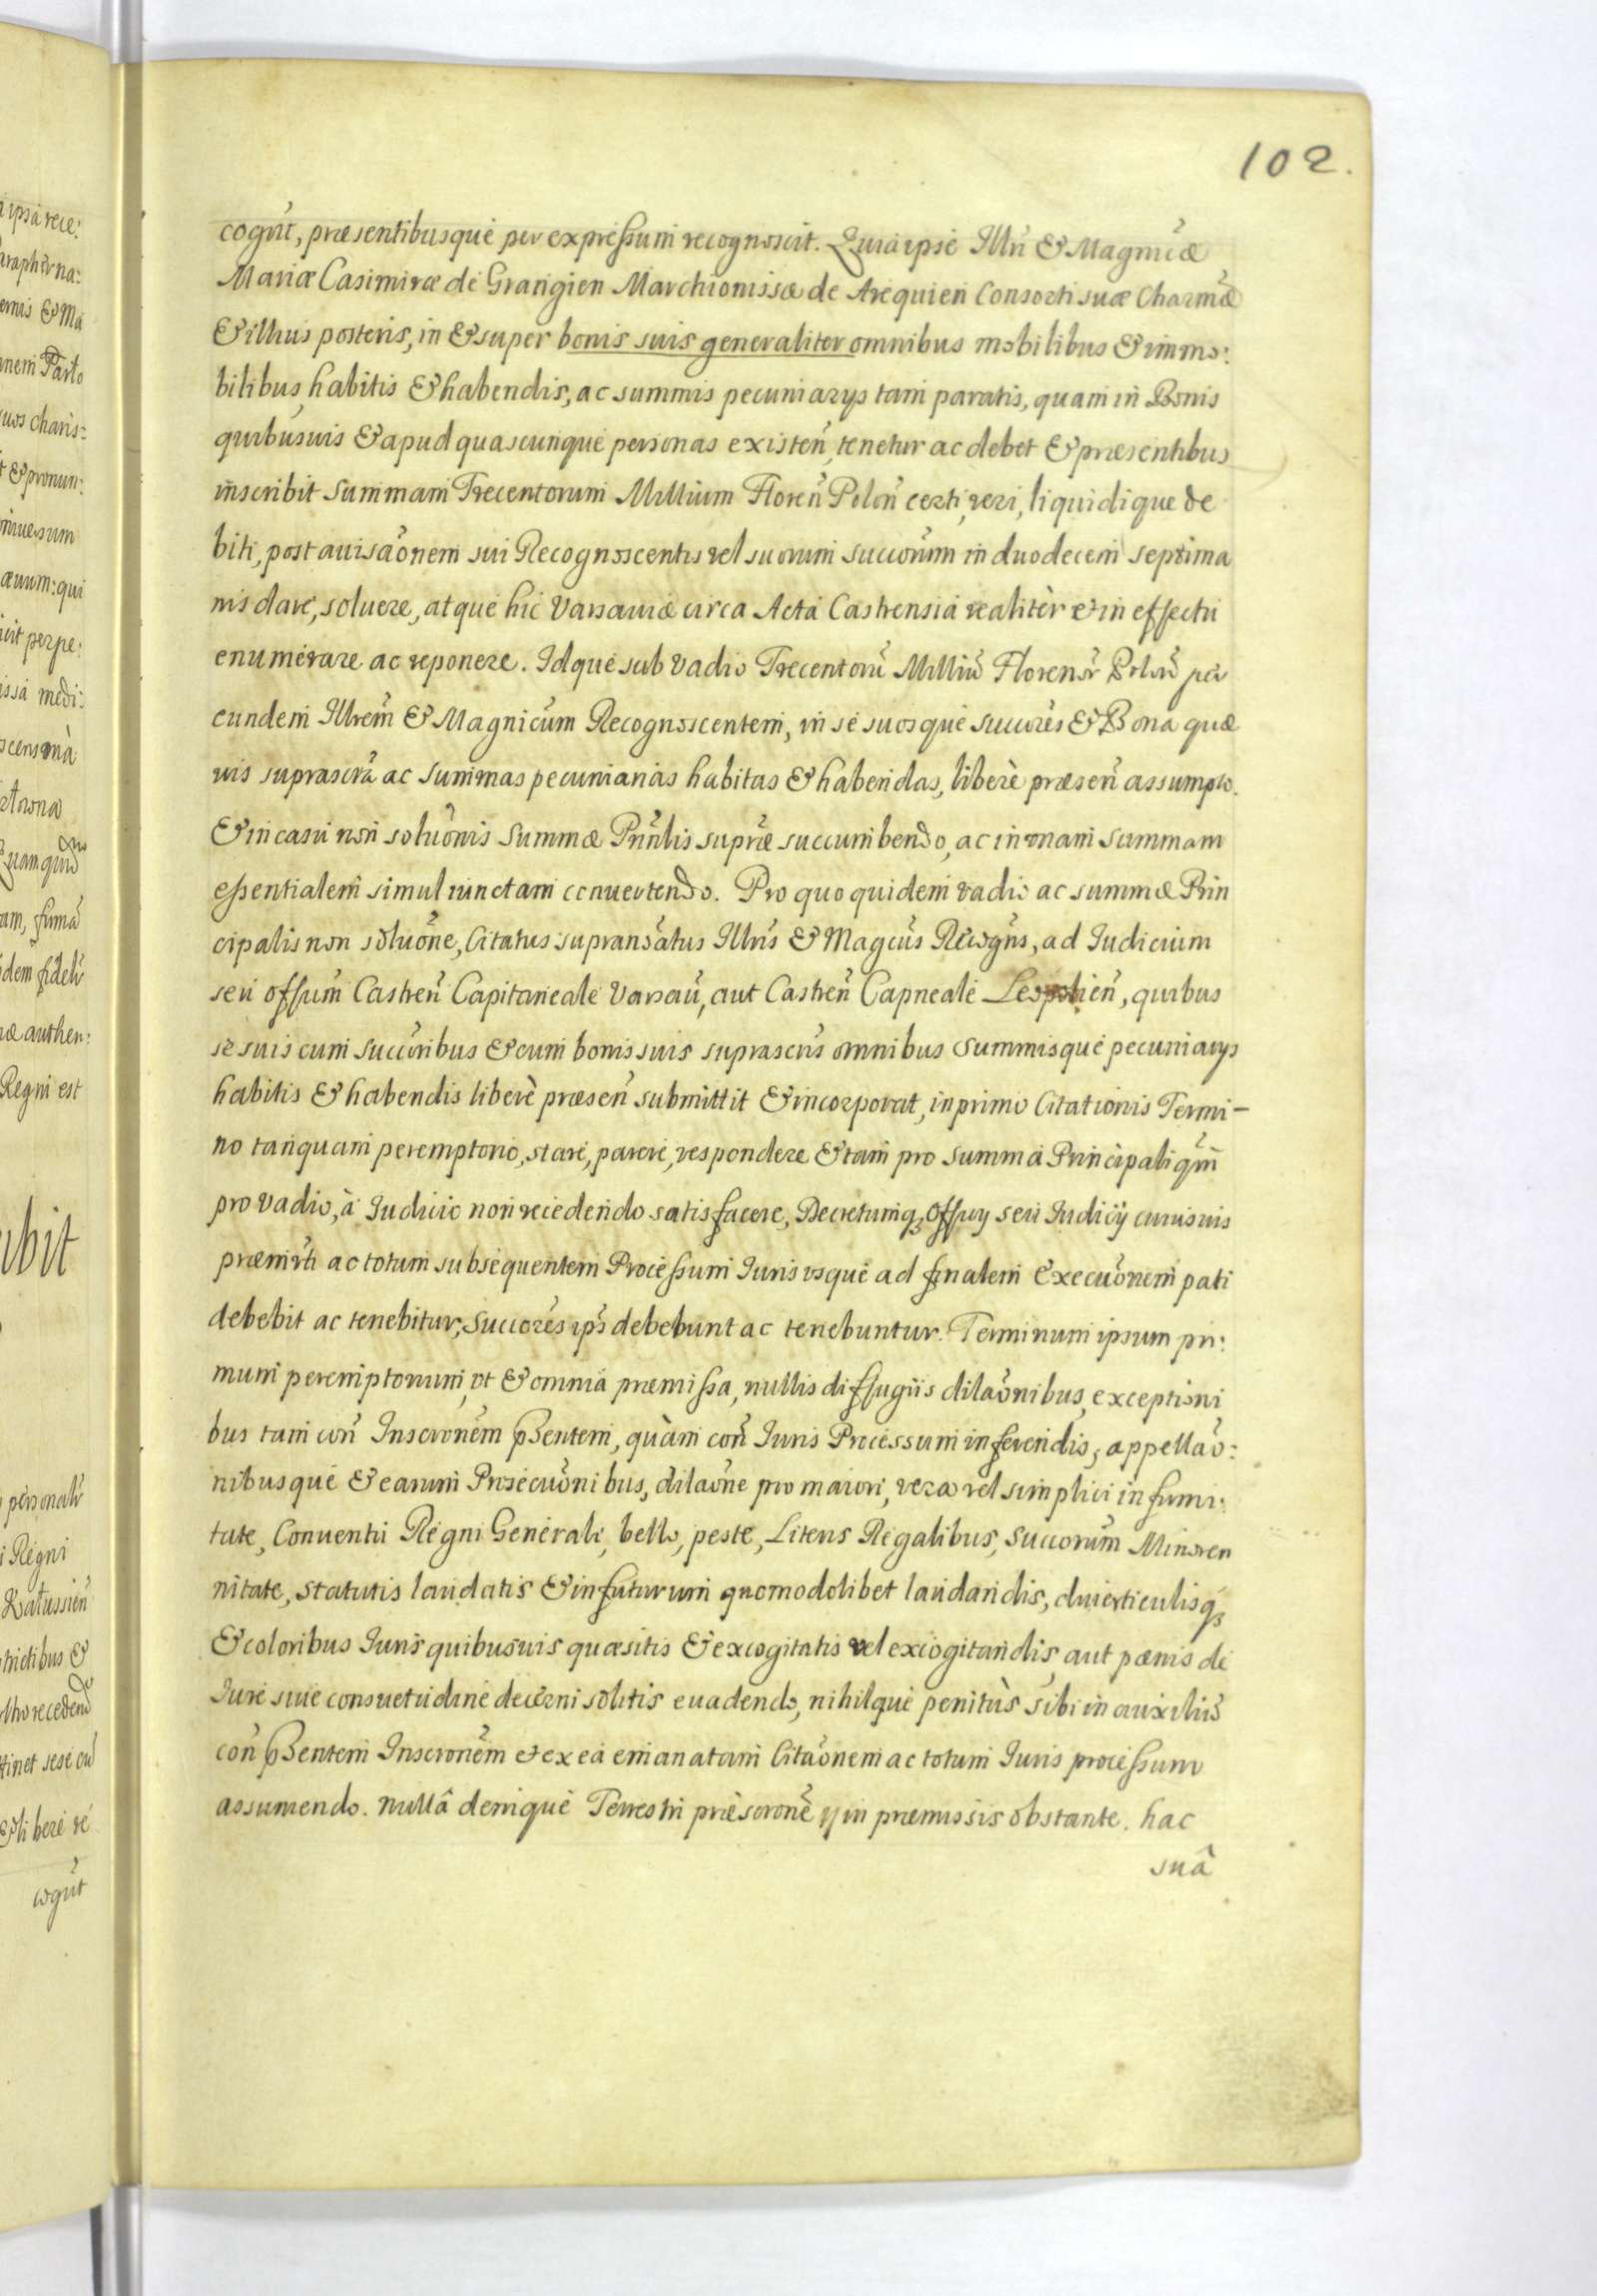 102.
a ipsa rece:
arapherna:
ernis & Ma
nem Parto
uos charis:
t & pronun:
niuersum
æuum: qui
icit perpe:
issa medi:
am, firmã
dem fideli
ræ authen:
Regni est
ubit
personalr
i Regni
tho recedend
tinet sese cu
& libere re
cogũt
cogũt, præsentibusque per expressum recognoscit. Quia ipse Illri & Magnicæ
Mariæ Casimiræ de Grangien Marchionissæ de Arequien Consorti suæ Charmæ
& illius posteris, in & super bonis suis generaliter omnibus mobilibus & immo:
bilibus habitis & habendis, ac summis pecuniarys tam paratis, quam in Bonis
quibusuis & apud quascunque personas existeñ, tenetur ac debet & præsentibus
inscribit summam Trecentorum Millium Floreñ Poloñ certi, veri, liquidique de
biti, post auisãonem sui Recognoscentis vel suorum succorũm in duodecem septima
nis dare, soluere, atque hic Varsauiæ circa Acta Castrensia realitèr et in effectu
enumerare ac reponere. Idque sub vadio Trecentorũ Milliũ Florenor Polor̃ per
eundem Illrem & Magnicum Recognoscentem, in se suosque succores & Bona quæ
uis suprascra ac summas pecuniarias habitas & habendas, liberè præseñ assumpto.
& in casu non soluõnis Summæ Prinlis supræ succumbendo, ac in vnam summam
essentialem simul iunctam conuertendo. Pro quo quidem vadio ac summæ Prin
cipalis non soluõne, Citatus supransatus Illris & Magcus Recogns, ad Iudicium
seu offum Castreñ Capitaneale Varsauĩ, aut Castreñ Capneale Leopolieñ, quibus
se suis cum succoribus & cum bonis suis suprascris omnibus summisque pecuniarys
habitis & habendis liberè præseñ submittit & incorporat, in primo Citationis Termi-
no tanquam peremptorio, stare, parere, respondere & tam pro summa Principali qm̃
pro vadio, à Iudicio non recedendo satisfacere, Decretumq; Offcy seu Iudicij cuiusuis
præmiti ac totum subsequentem Processum Iuris vsque ad finalem Execuõnem pati
debebit ac tenebitur, Succores ips debebunt ac tenebuntur. Terminum ipsum pri:
mum peremptorium, vt & omnia præmissa, nullis diffugiis dilaõnibus, exceptioni
bus tam coñ Inscronem pntem, quàm coñ Iuris Processum inferendis, appellaõ:
nibusque & earum Prosecuõnibus, dilaõne pro maiori, vera vel simplici infirmi:
tate, Conuentu Regni Generali, bello, peste, Literis Regalibus, Succorum Minoren
nitate, statutis laudatis & in futurum quomodolibet laudandis, diuerticulisq;
& coloribus Iuris quibusuis quæsitis & excogitatis vel excogitandis aut pænis de
Iure siue consuetudine decerni solitis euadendo, nihilque penitùs sibi in auxiliũ
coñ pntem Inscronem et ex ea emanatam Citaõnem ac totum Iuris processum
assumendo. nullâ denique Terrestri præscrone in præmissis obstante. hac
suâ